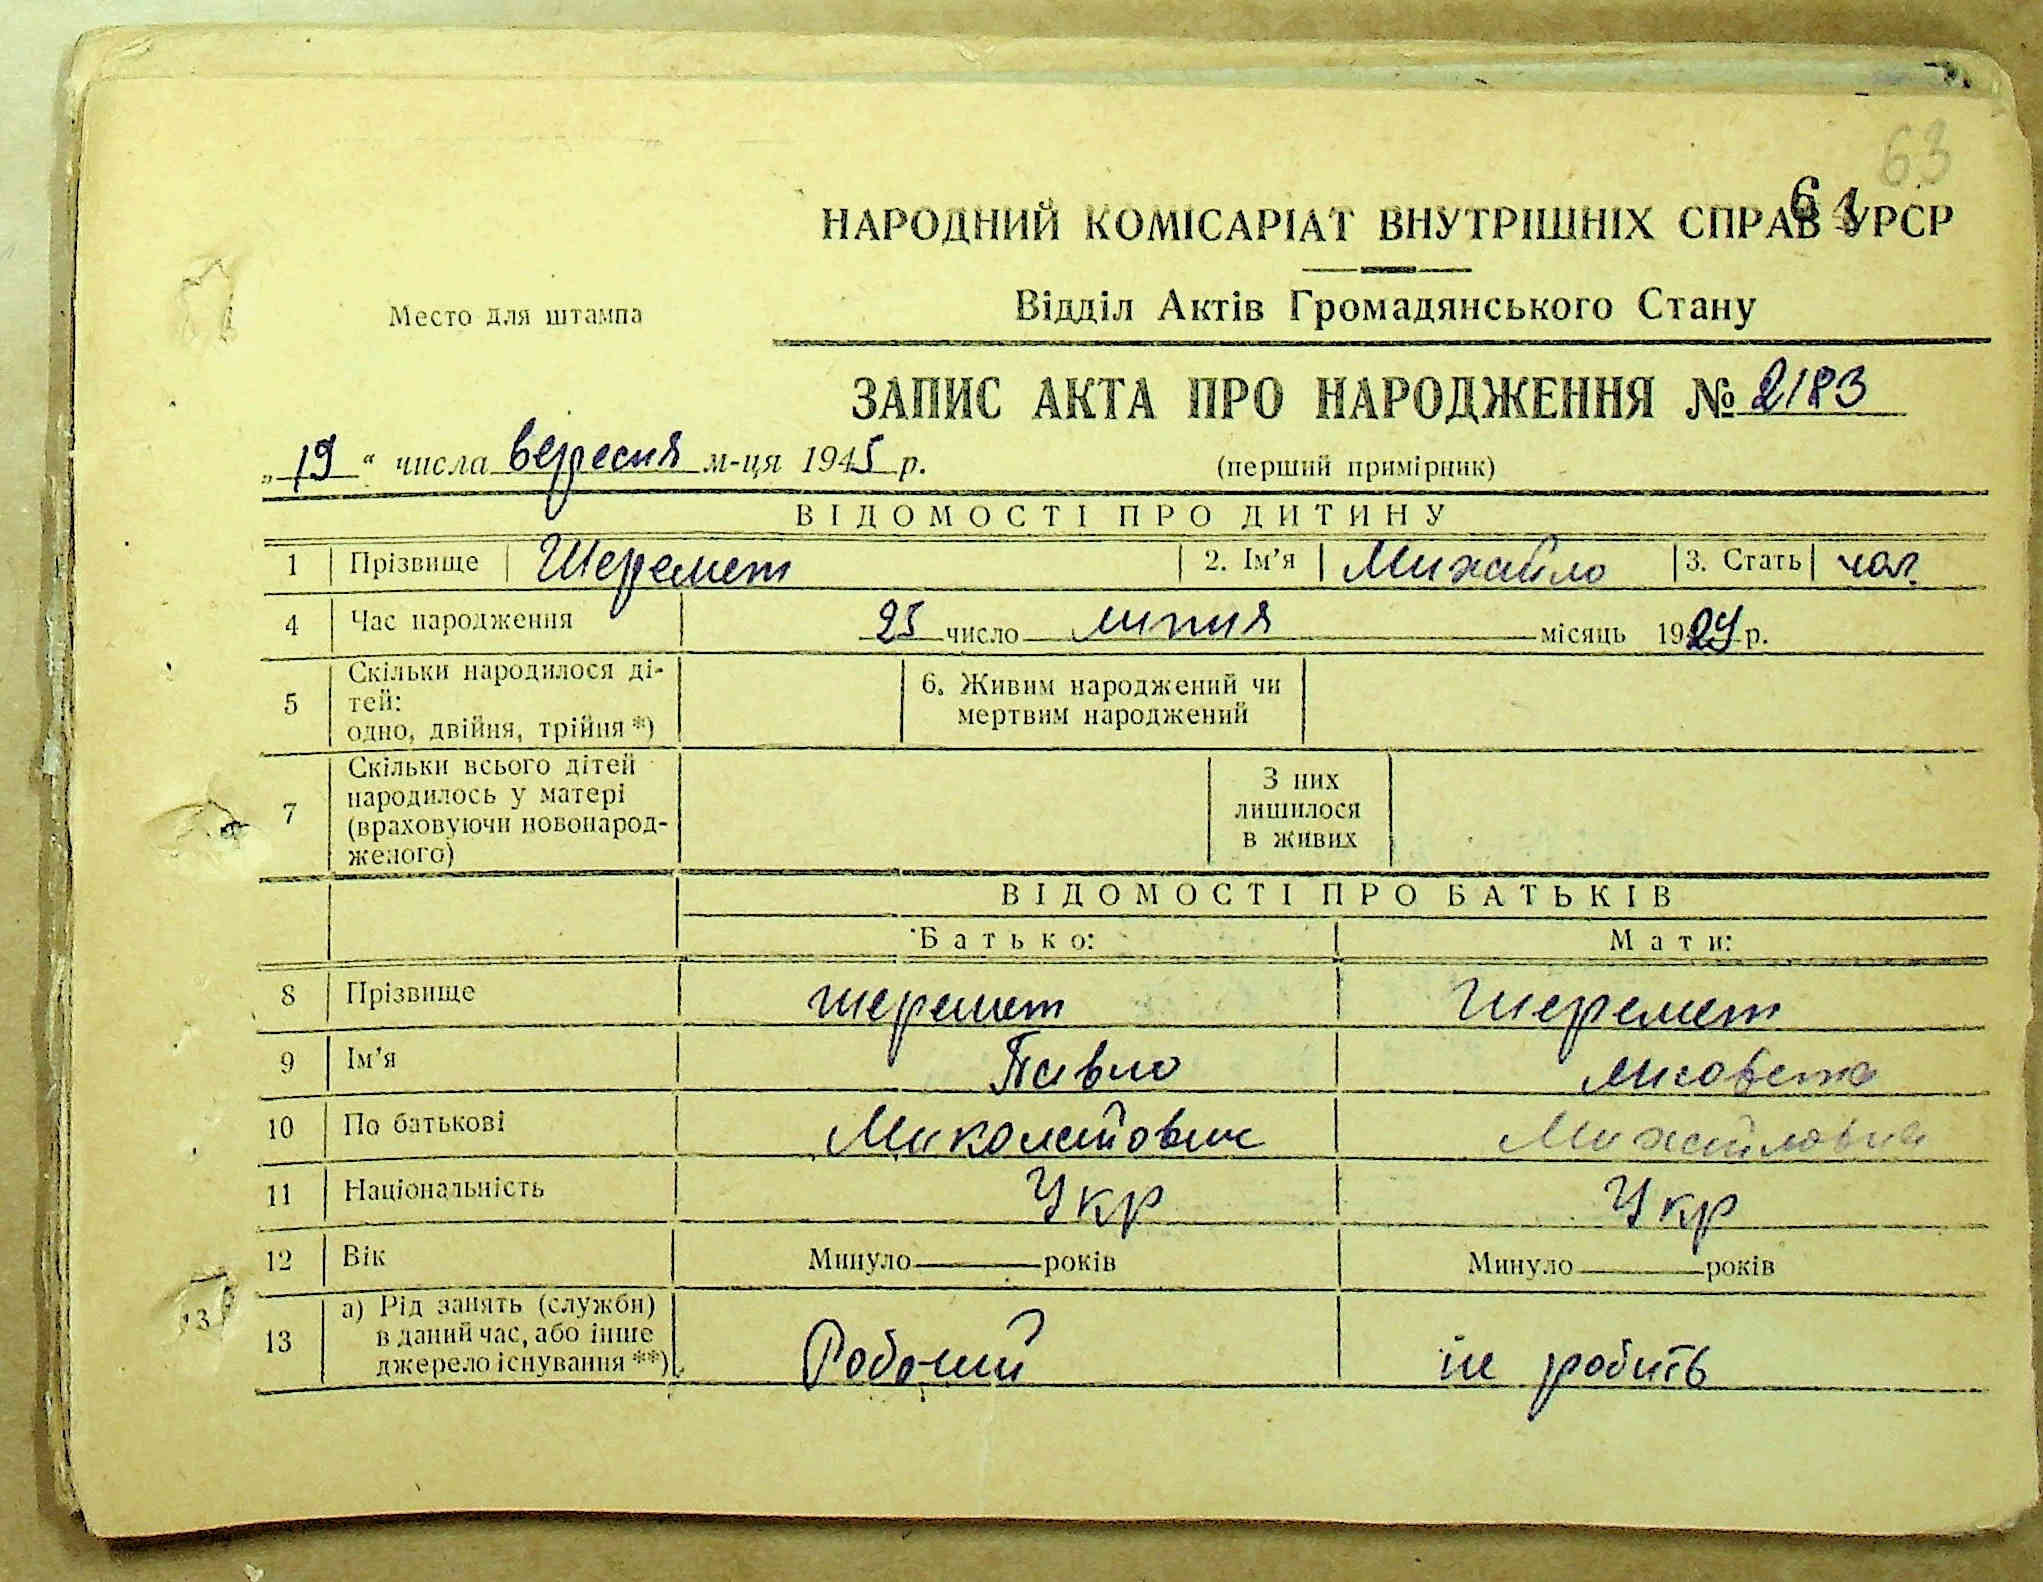 63
64
НАРОДНИЙ КОМІСАРІАТ ВНУТРІШНІХ СПРАВ УРСР
Место для штампа
Відділ Актів Громадянського Стану
ЗАПИС АКТА ПРО НАРОДЖЕННЯ № 2183
„19“ числа вересня м-ця 1945 р. (перший примірник)
ВІДОМОСТІ ПРО ДИТИНУ
1 Прізвище Шеремет 2. Ім’я Михайло 3. Стать чол.
4 Час народження 25 число липня місяць 1929 р.
5 Скільки народилося ді-
тей:
одно, двійня, трійня *)
6. Живим народжений чи
мертвим народжений
7 Скільки всього дітей
народилось у матері
(враховуючи новонарод-
женого)
З них
лишилося
в живих
ВІДОМОСТІ ПРО БАТЬКІВ
Батько: Мати:
8 Прізвище Шеремет Шеремет
9 Ім’я Павло Лисовета
10 По батькові Миколайович Михайловна
11 Національність Укр Укр
12 Вік Минуло років Минуло років
13 а) Рід занять (служби)
в даний час, або інше
джерело існування **)
Робочий не робить